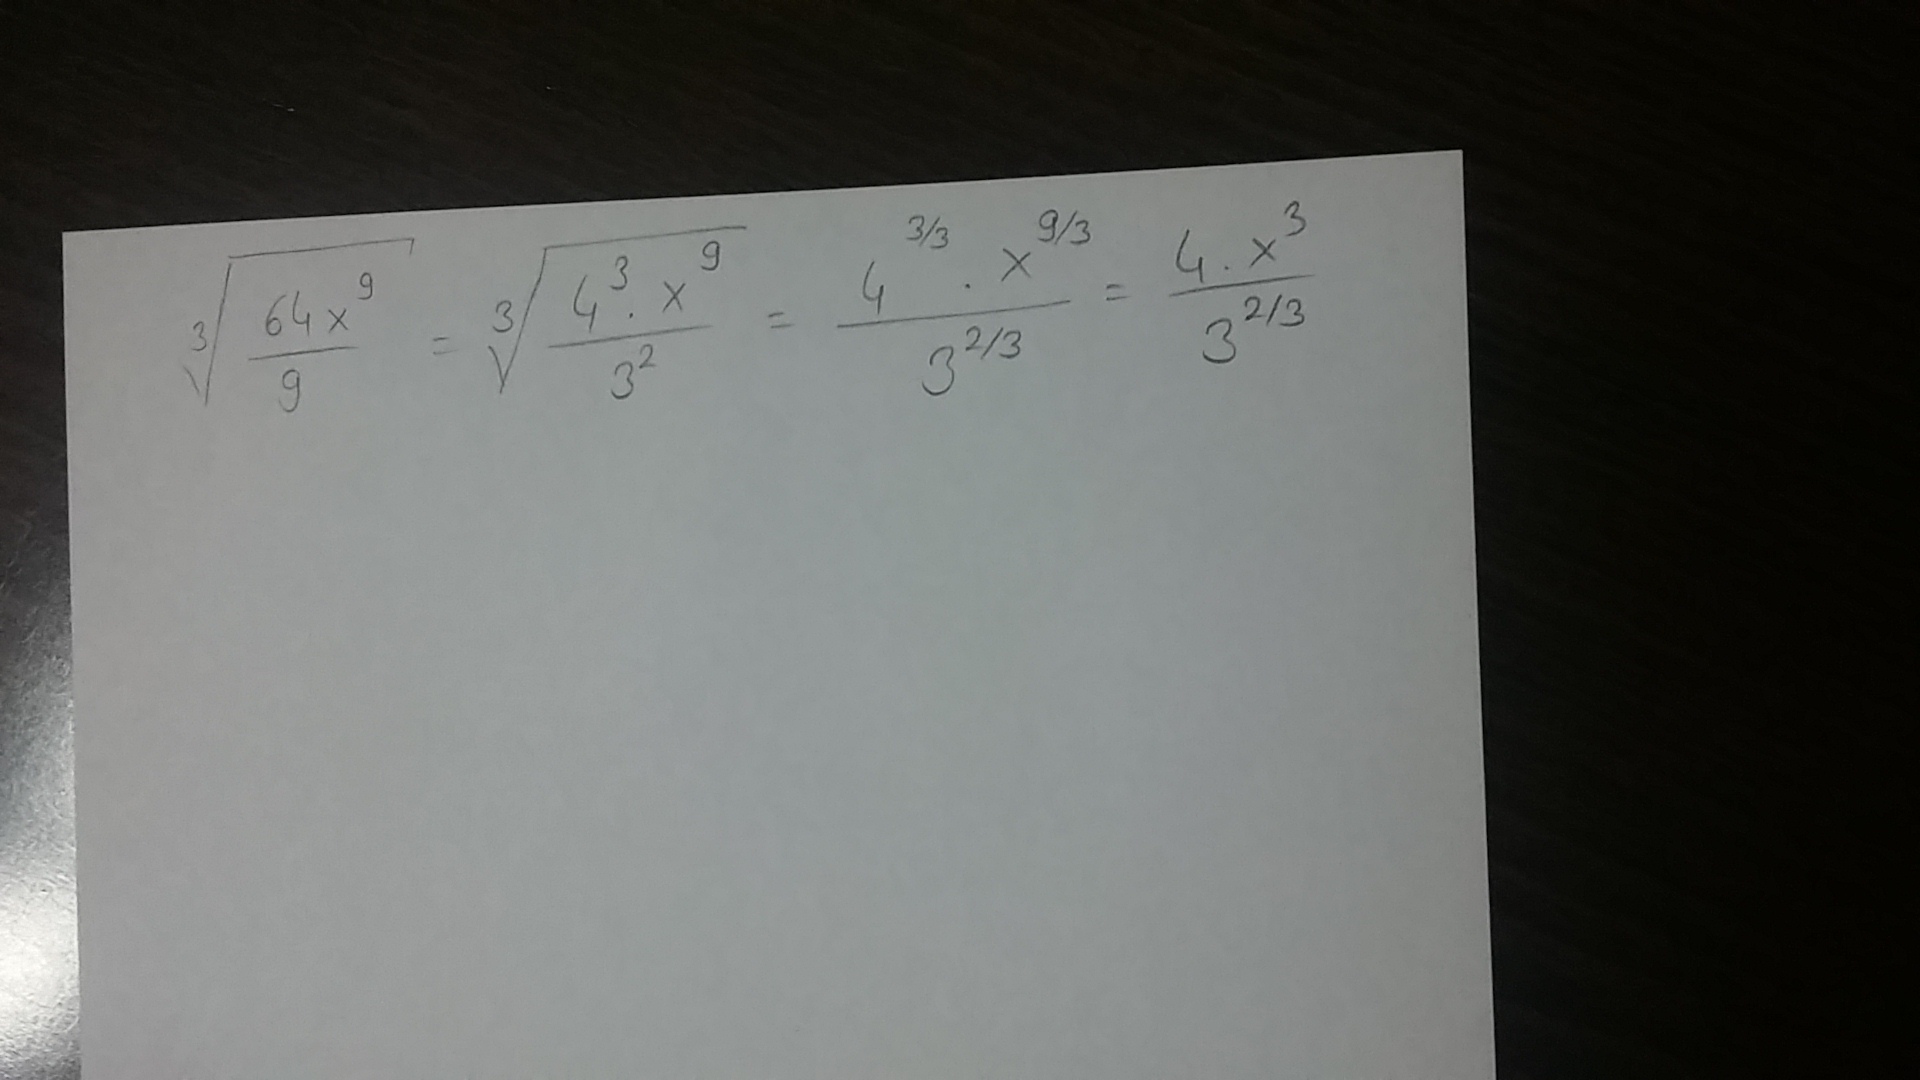 ∛(64x⁹/9) = ∛(4³·x⁹/3²) = 4^(3/3)·x^(9/3)/3^(2/3) = 4·x³/3^(2/3)